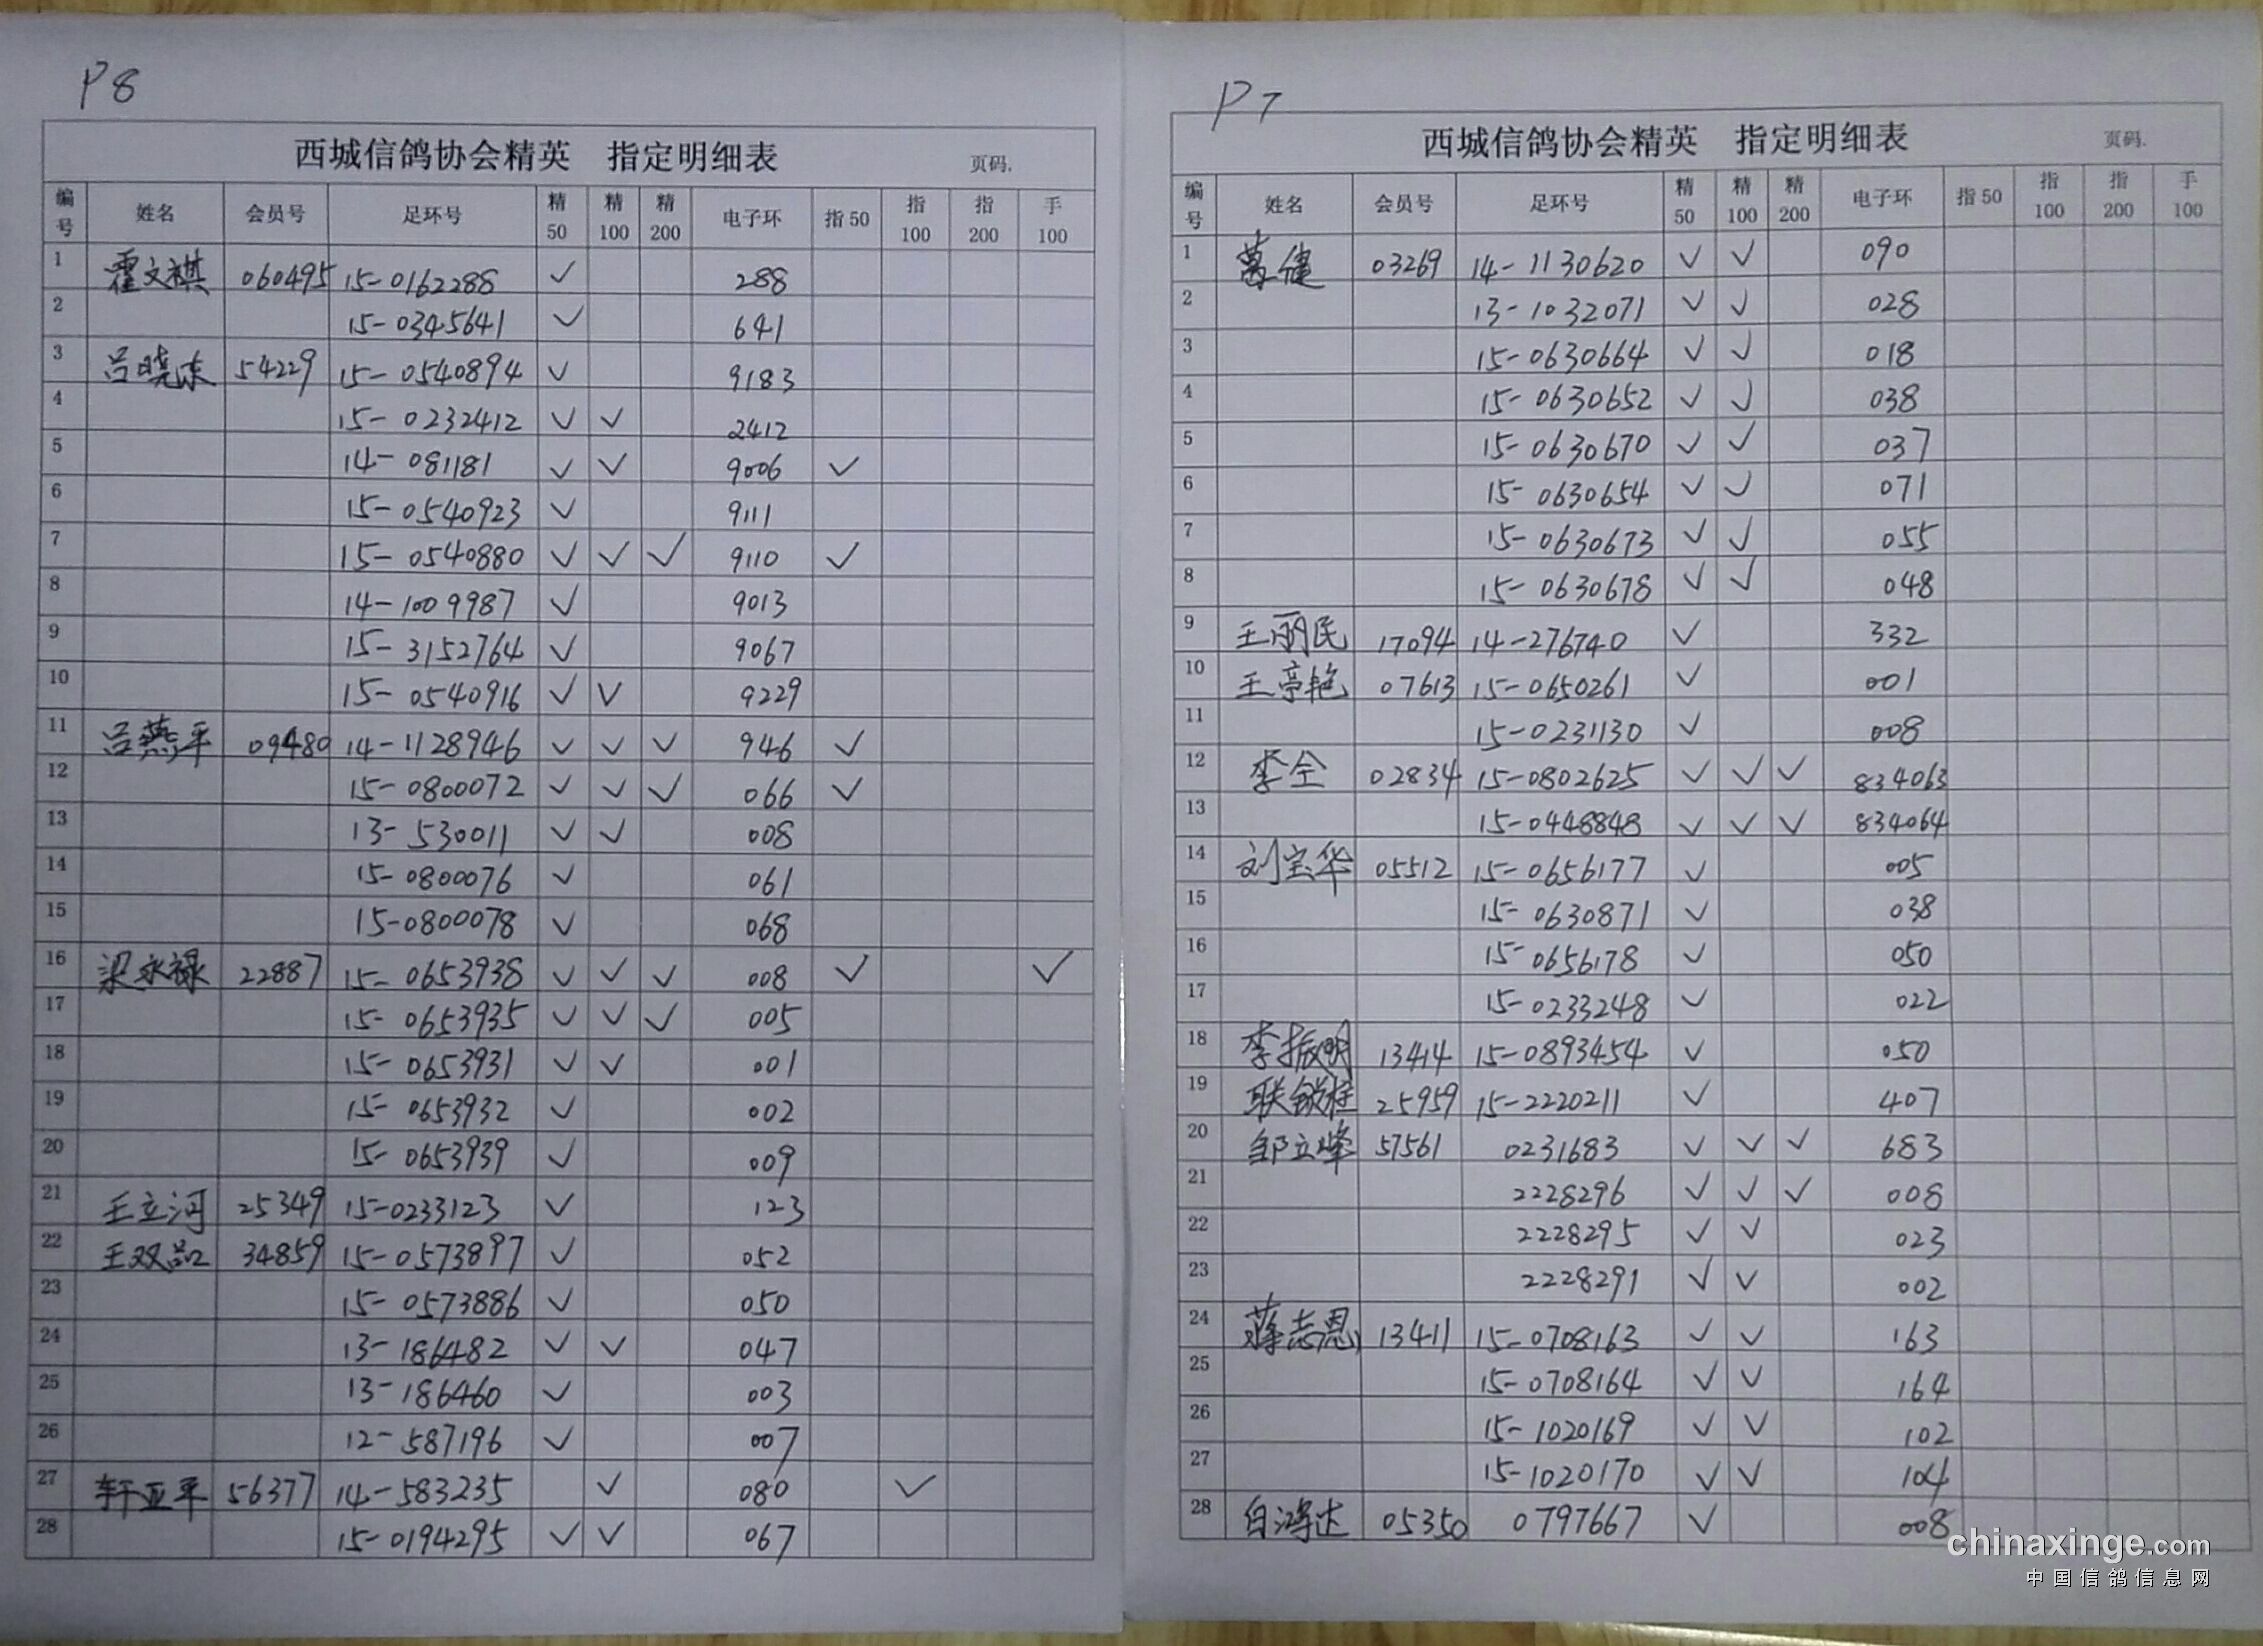 P8
西城信鸽协会精英 指定明细表 页码.
编号 姓名 会员号 足环号 精50 精100 精200 电子环 指50 指100 指200 手100
1 霍文祺 060495 15-0162288 ✓ 288
2 15-0345641 ✓ 641
3 吕晓东 54229 15-0540894 ✓ 9183
4 15-0232412 ✓ ✓ 2412
5 14-081181 ✓ ✓ 9006 ✓
6 15-0540923 ✓ 9111
7 15-0540880 ✓ ✓ ✓ 9110 ✓
8 14-1009987 ✓ 9013
9 15-3152764 ✓ 9067
10 15-0540916 ✓ ✓ 9229
11 吕燕平 09480 14-1128946 ✓ ✓ ✓ 946 ✓
12 15-0800072 ✓ ✓ ✓ 066 ✓
13 13-530011 ✓ ✓ 008
14 15-0800076 ✓ 061
15 15-0800078 ✓ 068
16 梁永禄 22887 15-0653938 ✓ ✓ ✓ 008 ✓ ✓
17 15-0653935 ✓ ✓ ✓ 005
18 15-0653931 ✓ ✓ 001
19 15-0653932 ✓ 002
20 15-0653939 ✓ 009
21 王立河 25349 15-0233123 ✓ 123
22 王双品 34859 15-0573897 ✓ 052
23 15-0573886 ✓ 050
24 13-186482 ✓ ✓ 047
25 13-186460 ✓ 003
26 12-587196 ✓ 007
27 轩亚平 56377 14-583235 ✓ 080 ✓
28 15-0194295 ✓ ✓ 067
P7
西城信鸽协会精英 指定明细表 页码.
编号 姓名 会员号 足环号 精50 精100 精200 电子环 指50 指100 指200 手100
1 葛健 03269 14-1130620 ✓ ✓ 090
2 13-1032071 ✓ ✓ 028
3 15-0630664 ✓ ✓ 018
4 15-0630652 ✓ ✓ 038
5 15-0630670 ✓ ✓ 037
6 15-0630654 ✓ ✓ 071
7 15-0630673 ✓ ✓ 055
8 15-0630678 ✓ ✓ 048
9 王丽民 17094 14-276740 ✓ 332
10 王亭艳 07613 15-0650261 ✓ 001
11 15-0231130 ✓ 008
12 李全 02834 15-0802625 ✓ ✓ ✓ 834063
13 15-0448848 ✓ ✓ ✓ 834064
14 刘宝华 05512 15-0656177 ✓ 005
15 15-0630871 ✓ 038
16 15-0656178 ✓ 050
17 15-0233248 ✓ 022
18 李振明 13414 15-0893454 ✓ 050
19 联锁柱 25959 15-2220211 ✓ 407
20 邹立峰 57561 0231683 ✓ ✓ ✓ 683
21 2228296 ✓ ✓ ✓ 008
22 2228295 ✓ ✓ 023
23 2228291 ✓ ✓ 002
24 蒋志恩 13411 15-0708163 ✓ ✓ 163
25 15-0708164 ✓ ✓ 164
26 15-1020169 ✓ ✓ 102
27 15-1020170 ✓ ✓ 104
28 白鸿达 05350 0797667 ✓ 008
chinaxinge.com
中国信鸽信息网